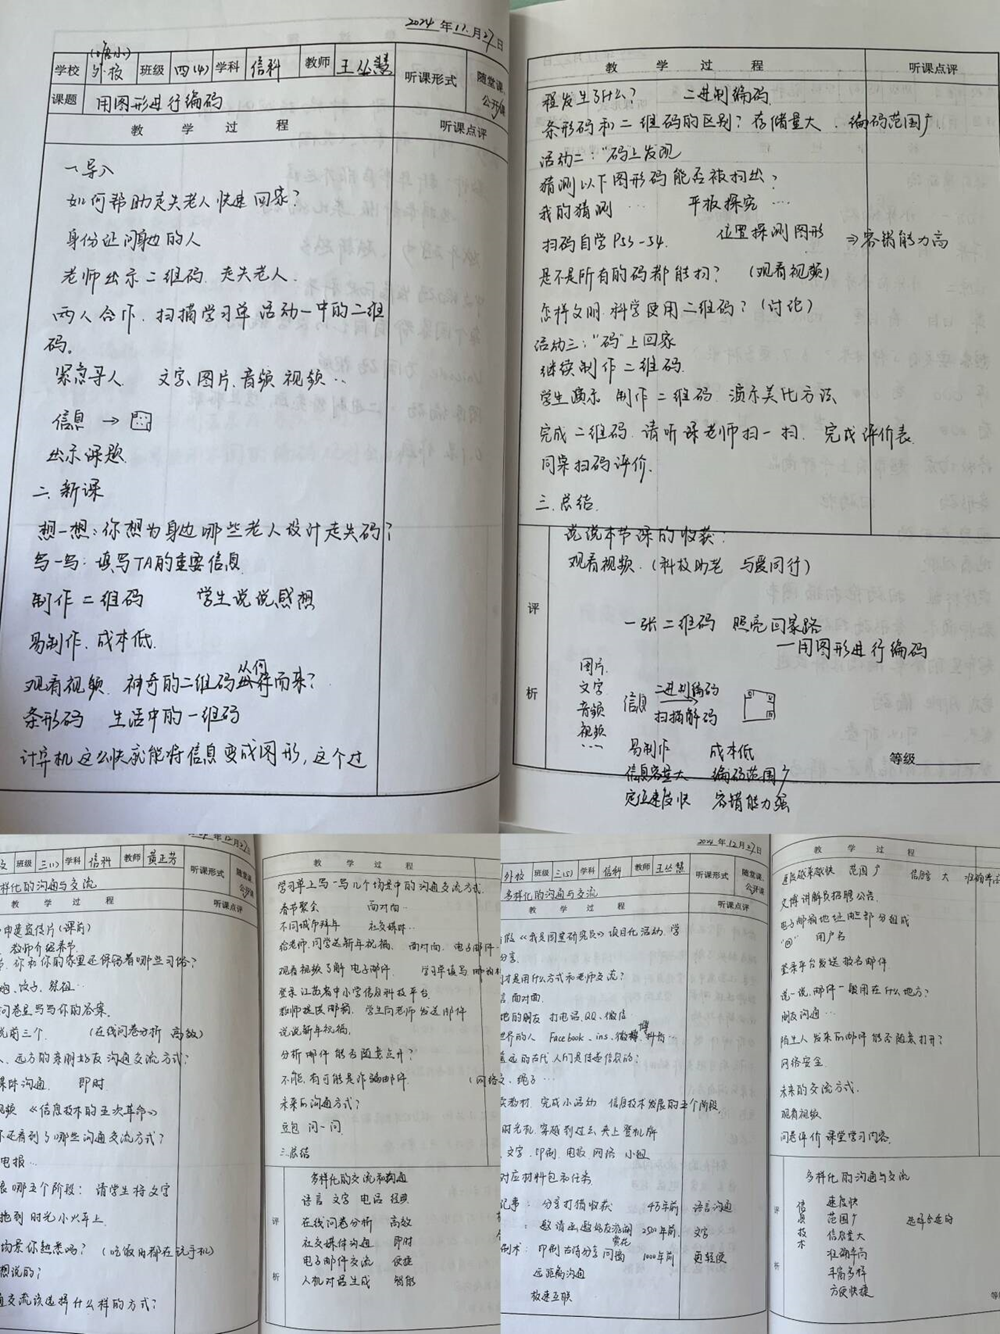 2024年11月27日
学校 (塘小)外校 班级 四(4) 学科 信科 教师 王丛慧 听课形式 随堂课 公开课
课题 用图形进行编码
教学过程 听课点评
一导入
如何帮助走失老人快速回家?
身份证 问身边的人
老师出示二维码 走失老人.
两人合作.扫描学习单活动一中的二维
码.
紧急寻人 文字、图片.音频 视频…
信息 →
出示课题
二.新课
想一想:你想为身边哪些老人设计走失码?
写一写:填写TA的重要信息
制作二维码 学生说说感想
易制作.成本低.
观看视频.神奇的二维码从何而来?
条形码 生活中的一维码
计算机这么快就能将信息变成图形,这个过
教学过程 听课点评
程发生了什么? 二进制编码
条形码和二维码的区别?存储量大.编码范围广
活动二:"码"上发现
猜测以下图形码能否被扫出?
我的猜测 … 平板探究 …
扫码自学P53-54. 位置探测图形 ⇒容错能力高
是不是所有的码都能扫? (观看视频)
怎样文明.科学使用二维码?(讨论)
活动三:"码"上回家
继续制作二维码.
学生演示 制作二维码.演示美化方法
完成二维码.请听课老师扫一扫.完成评价表.
同桌扫码评价.
三.总结.
说说本节课的收获.
观看视频.(科技助老 与爱同行)
评析
一张二维码 照亮回家路
—用图形进行编码
图片
文字
音频
视频
……
信息 二进制编码
扫描解码
易制作 成本低
信息容量大 编码范围广
定位速度快 容错能力强
等级
年12月27日
班级 三(1) 学科 信科 教师 黄正芳 听课形式 随堂课 公开课
样化的沟通与交流
教学过程 听课点评
中建宣传片(课前)
教师介绍春节
你和你的家里还保留着哪些习俗?
饺子.祭祖…
问卷星写写你的答案.
说前三个. (在线问卷分析 高效)
、远方的亲朋好友沟通交流方式?
媒体沟通. 即时
视频《信息技术的五次革命》
你还看到了哪些沟通交流方式?
电报…
哪五个阶段:请学生将文字
拖到时光小火车上.
场景你想来吗?(吃饭时都在玩手机)
想说的:
交流该选择什么样的方式?
教学过程 听课点评
学习单上写一写几个场景中的沟通交流方式.
春节聚会 面对面…
不同城市拜年 社交媒体…
给老师.同学送新年祝福. 面对面.电子邮件
观看视频了解电子邮件. 学习单填写
登录江苏省中小学信息科技平台.
教师发送邮箱.学生向老师发送邮件
说说新年祝福.
分析邮件能否随意点开?
不能.有可能是诈骗邮件.
未来的沟通方式?
豆包 问一问.
三.总结
多样化的交流和沟通
语言 文字 电话 视频
在线问卷分析 高效
社交媒体沟通 即时
电子邮件交流 便捷
人机对话生成 智能
评析
2024年12月27日
外校 班级 三(5) 学科 信科 教师 王丛慧 听课形式 随堂课 公开课
多样化的沟通与交流
教学过程 听课点评
《我是国宝研究员》项目化活动.学
是用什么方式和老师交流?
面对面.
地的朋友 打电话.QQ.微信
世界的人 Facebook、ins.微博.抖音
遥远的古代人们是怎么传信息的:
(网络 、绳子…
读教材.完成小活动 信息技术发展的五个阶段.
时光机.穿越到过去.关上登机牌
文字.印刷.电报 网络 小组
对应材料包和任务
记事: 分享打猎收获 4万年前 语言沟通
: 邀请函邀好友游湖赏花 2500年前 文字
刷术: 印刷 1000年前 更轻便
远距离沟通
极速互联
教学过程 听课点评
速度越来越快 范围广 信息 大
文博讲解员招聘公告.
电子邮箱地址由哪部分组成
"@" 用户名
登录平台发送报名邮件.
说一说.邮件一般用在什么地方?
朋友沟通…
陌生人发来的邮件能否随意打开?
网络安全.
未来的交流方式.
观看视频
问卷评价 课堂学习内容.
评析
多样化的沟通与交流
信息技术
速度快
范围广
信息量大
准确率高
手段多样
方便快捷
选择合适的